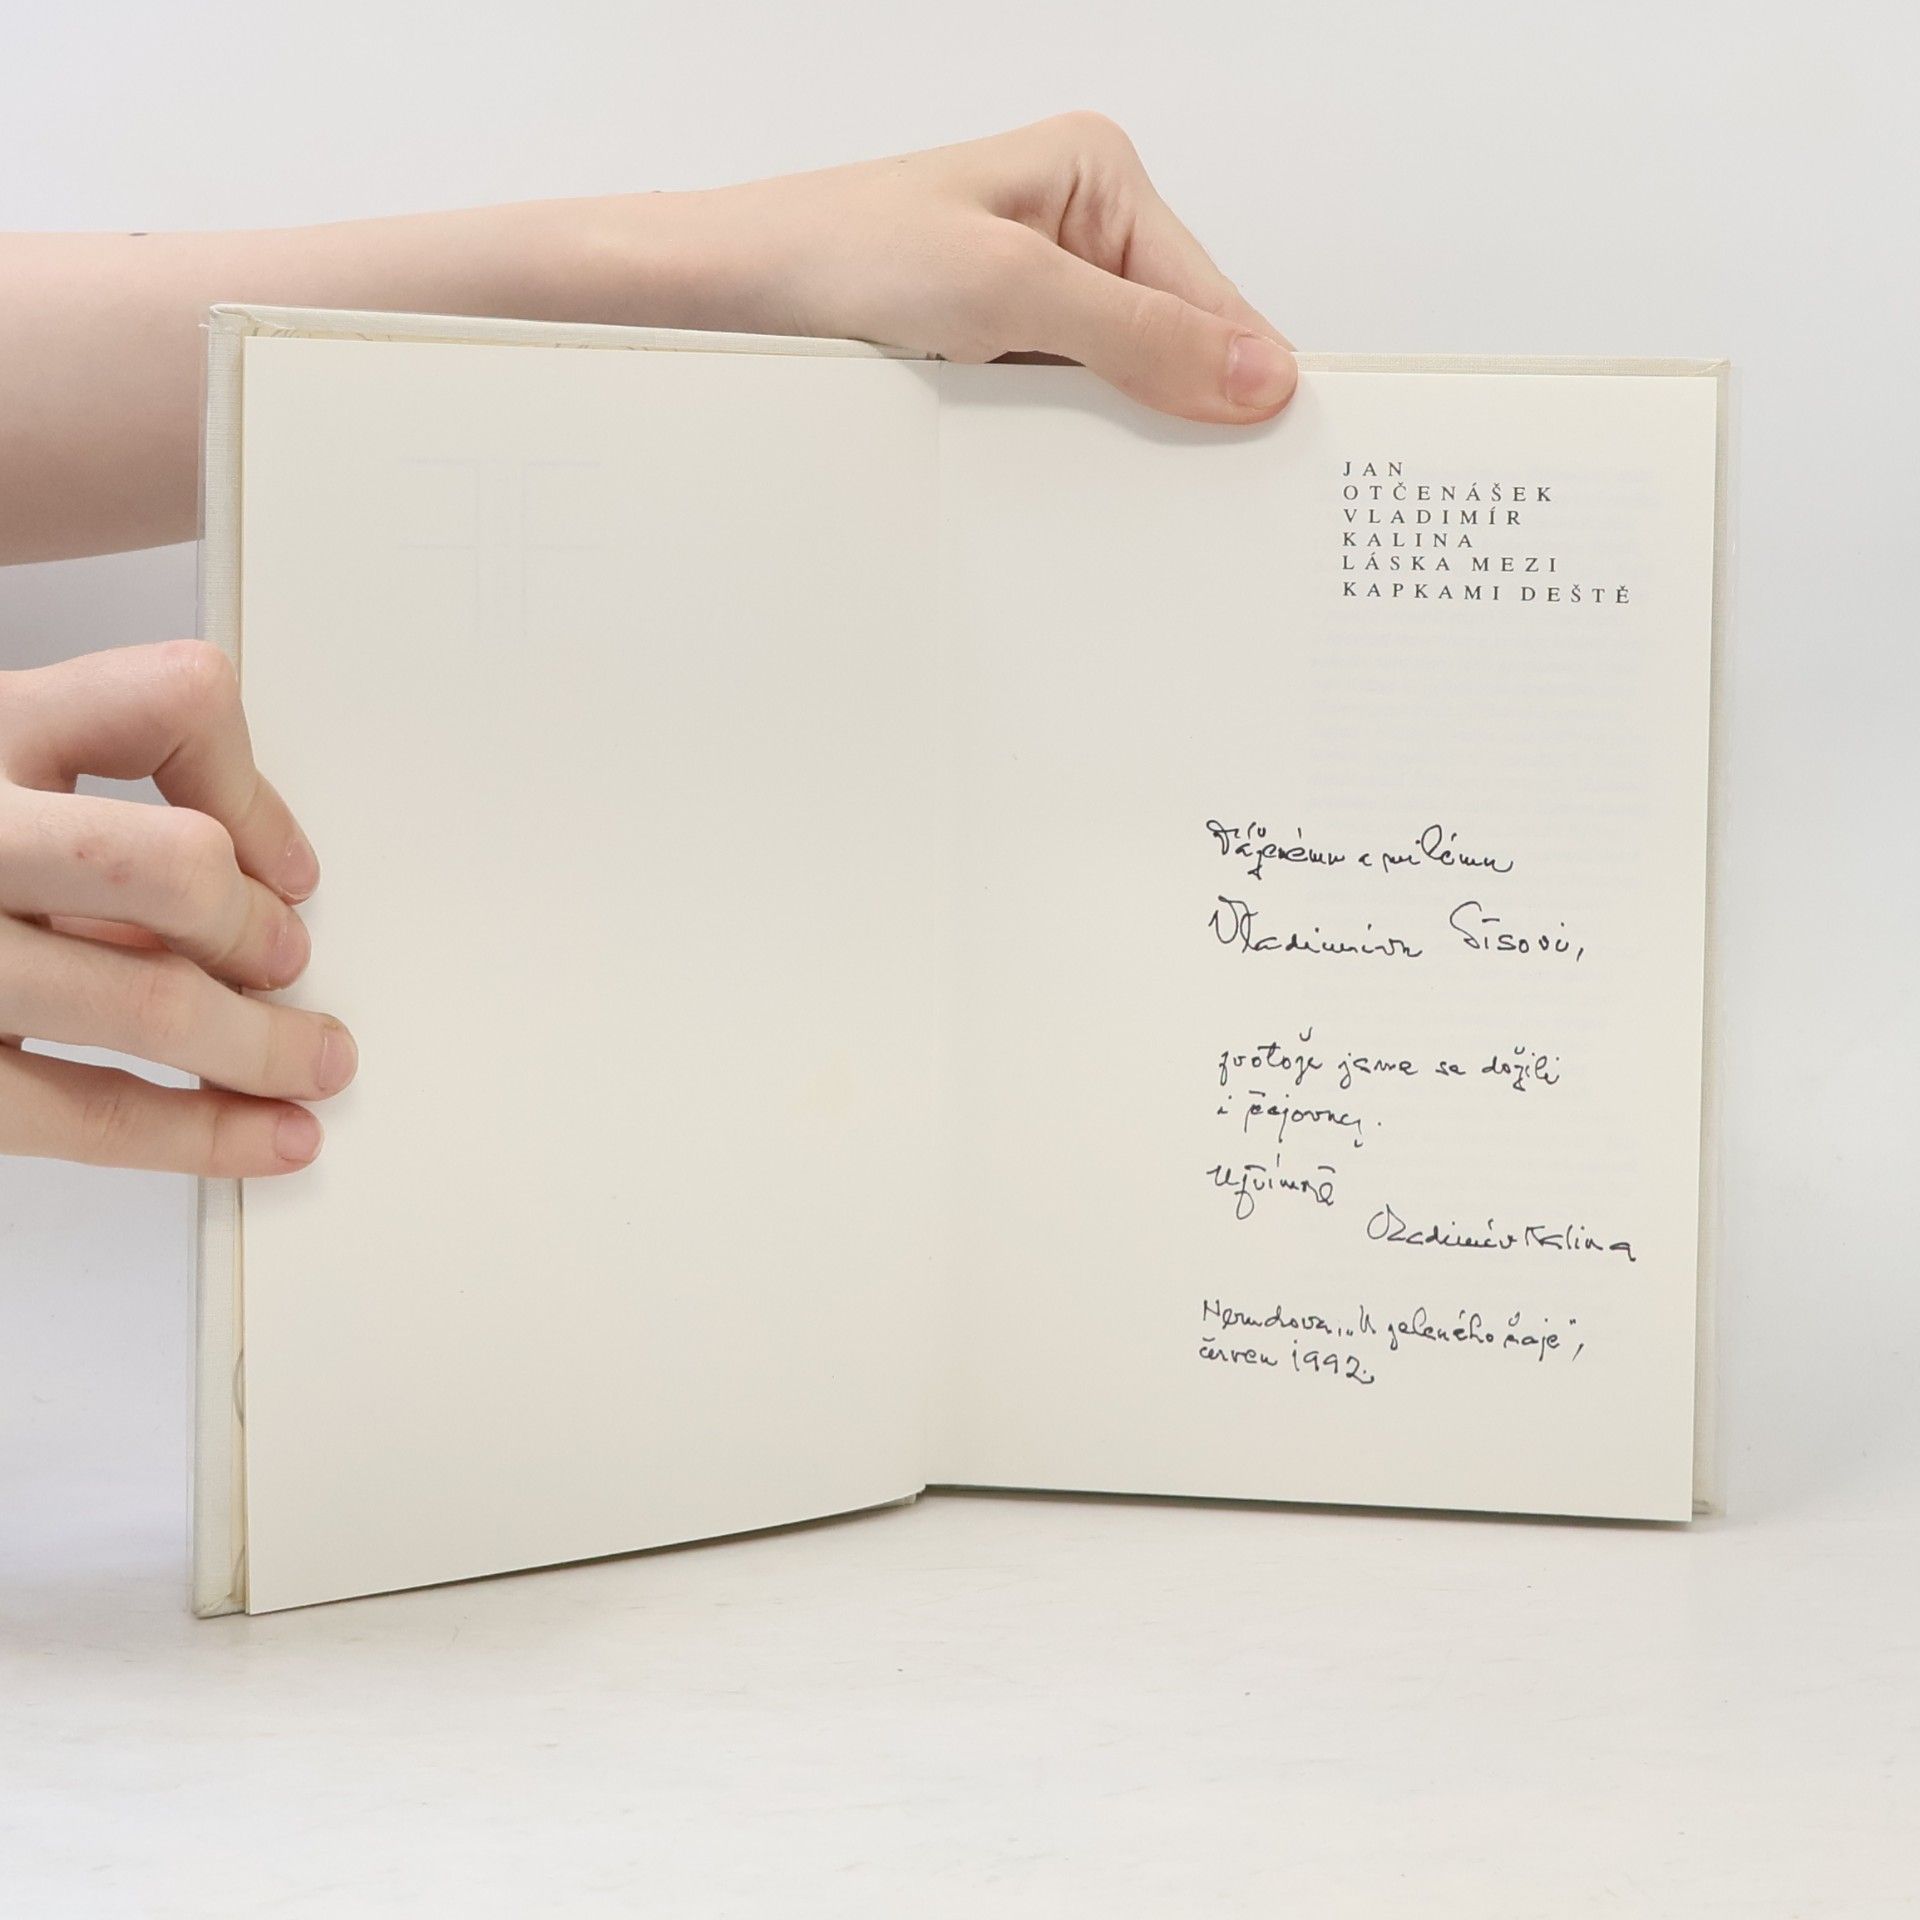 JAN
OTČENÁŠEK
VLADIMÍR
KALINA
LÁSKA MEZI
KAPKAMI DEŠTĚ
Váženému a milému
Vladimíru Sísovi,
protože jsme se dožili
i
upřímně
Vladimír Kalina
Nerudova, „U zeleného čaje“,
červen 1992.